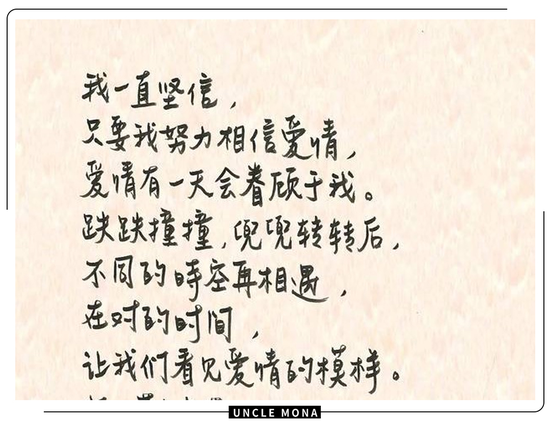 我一直坚信，
只要我努力相信爱情，
爱情有一天会眷顾于我。
跌跌撞撞，兜兜转转后，
不同的時空再相遇，
在对的时间，
让我们看见爱情的模样。
UNCLE MONA